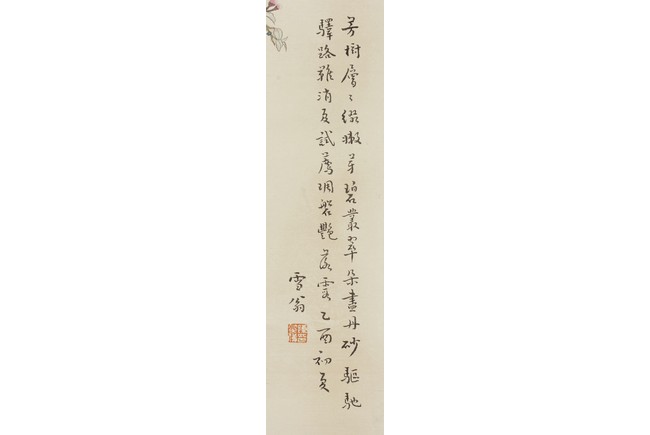 芳樹層〻綴嫩芽碧叢翠朵畫丹砂驅馳
驛路難消夏試薦琱盤艷落霞乙酉初夏
雪翁